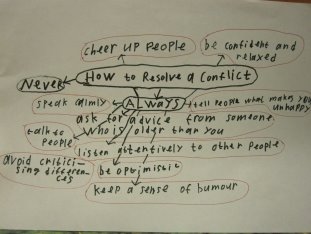 cheer up people
be confident and
relaxed
How to Resolve a Conflict
Never
speak calmly
Always
tell people what makes you
unhappy
ask for advice from someone
who is older than you
talk to
people
listen attentively to other people
avoid critici-
sing differen-
ces
be optimistic
keep a sense of humour